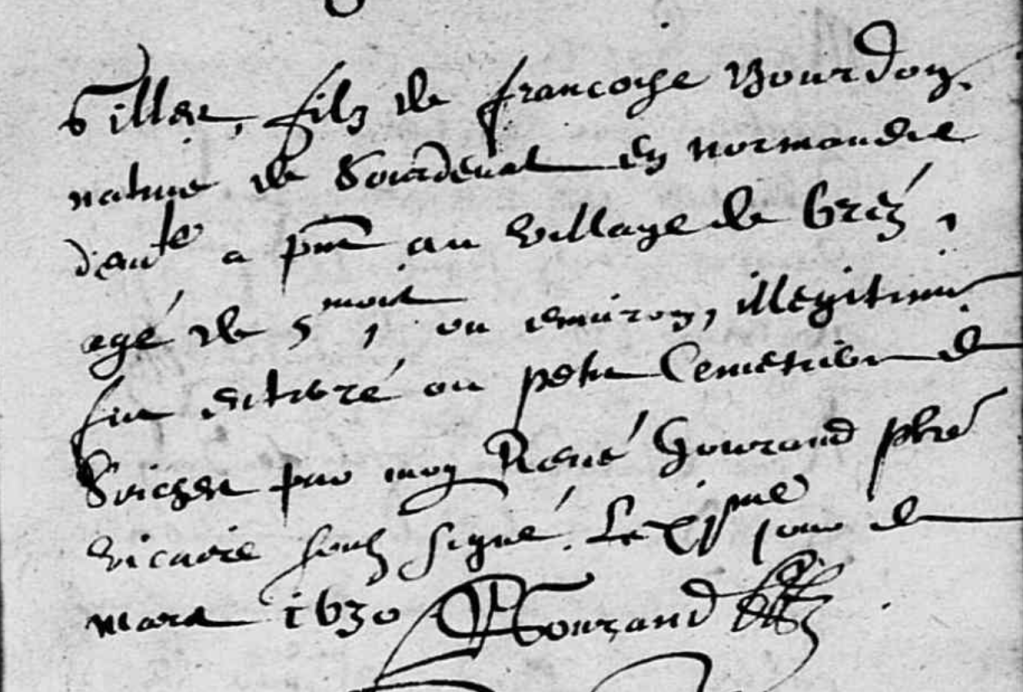 Gilles, filz de francoise Bourdon,
natiue de Sourdeual en normandie
demte a pnt au village de Gréz,
agé de 5 mois, ou enuiron, illegitime
fut enterré au petit Cemetiere de
par moy René Gourand pbre
vicaire soubz signé. Le jour de
mars 1630 R Gourand